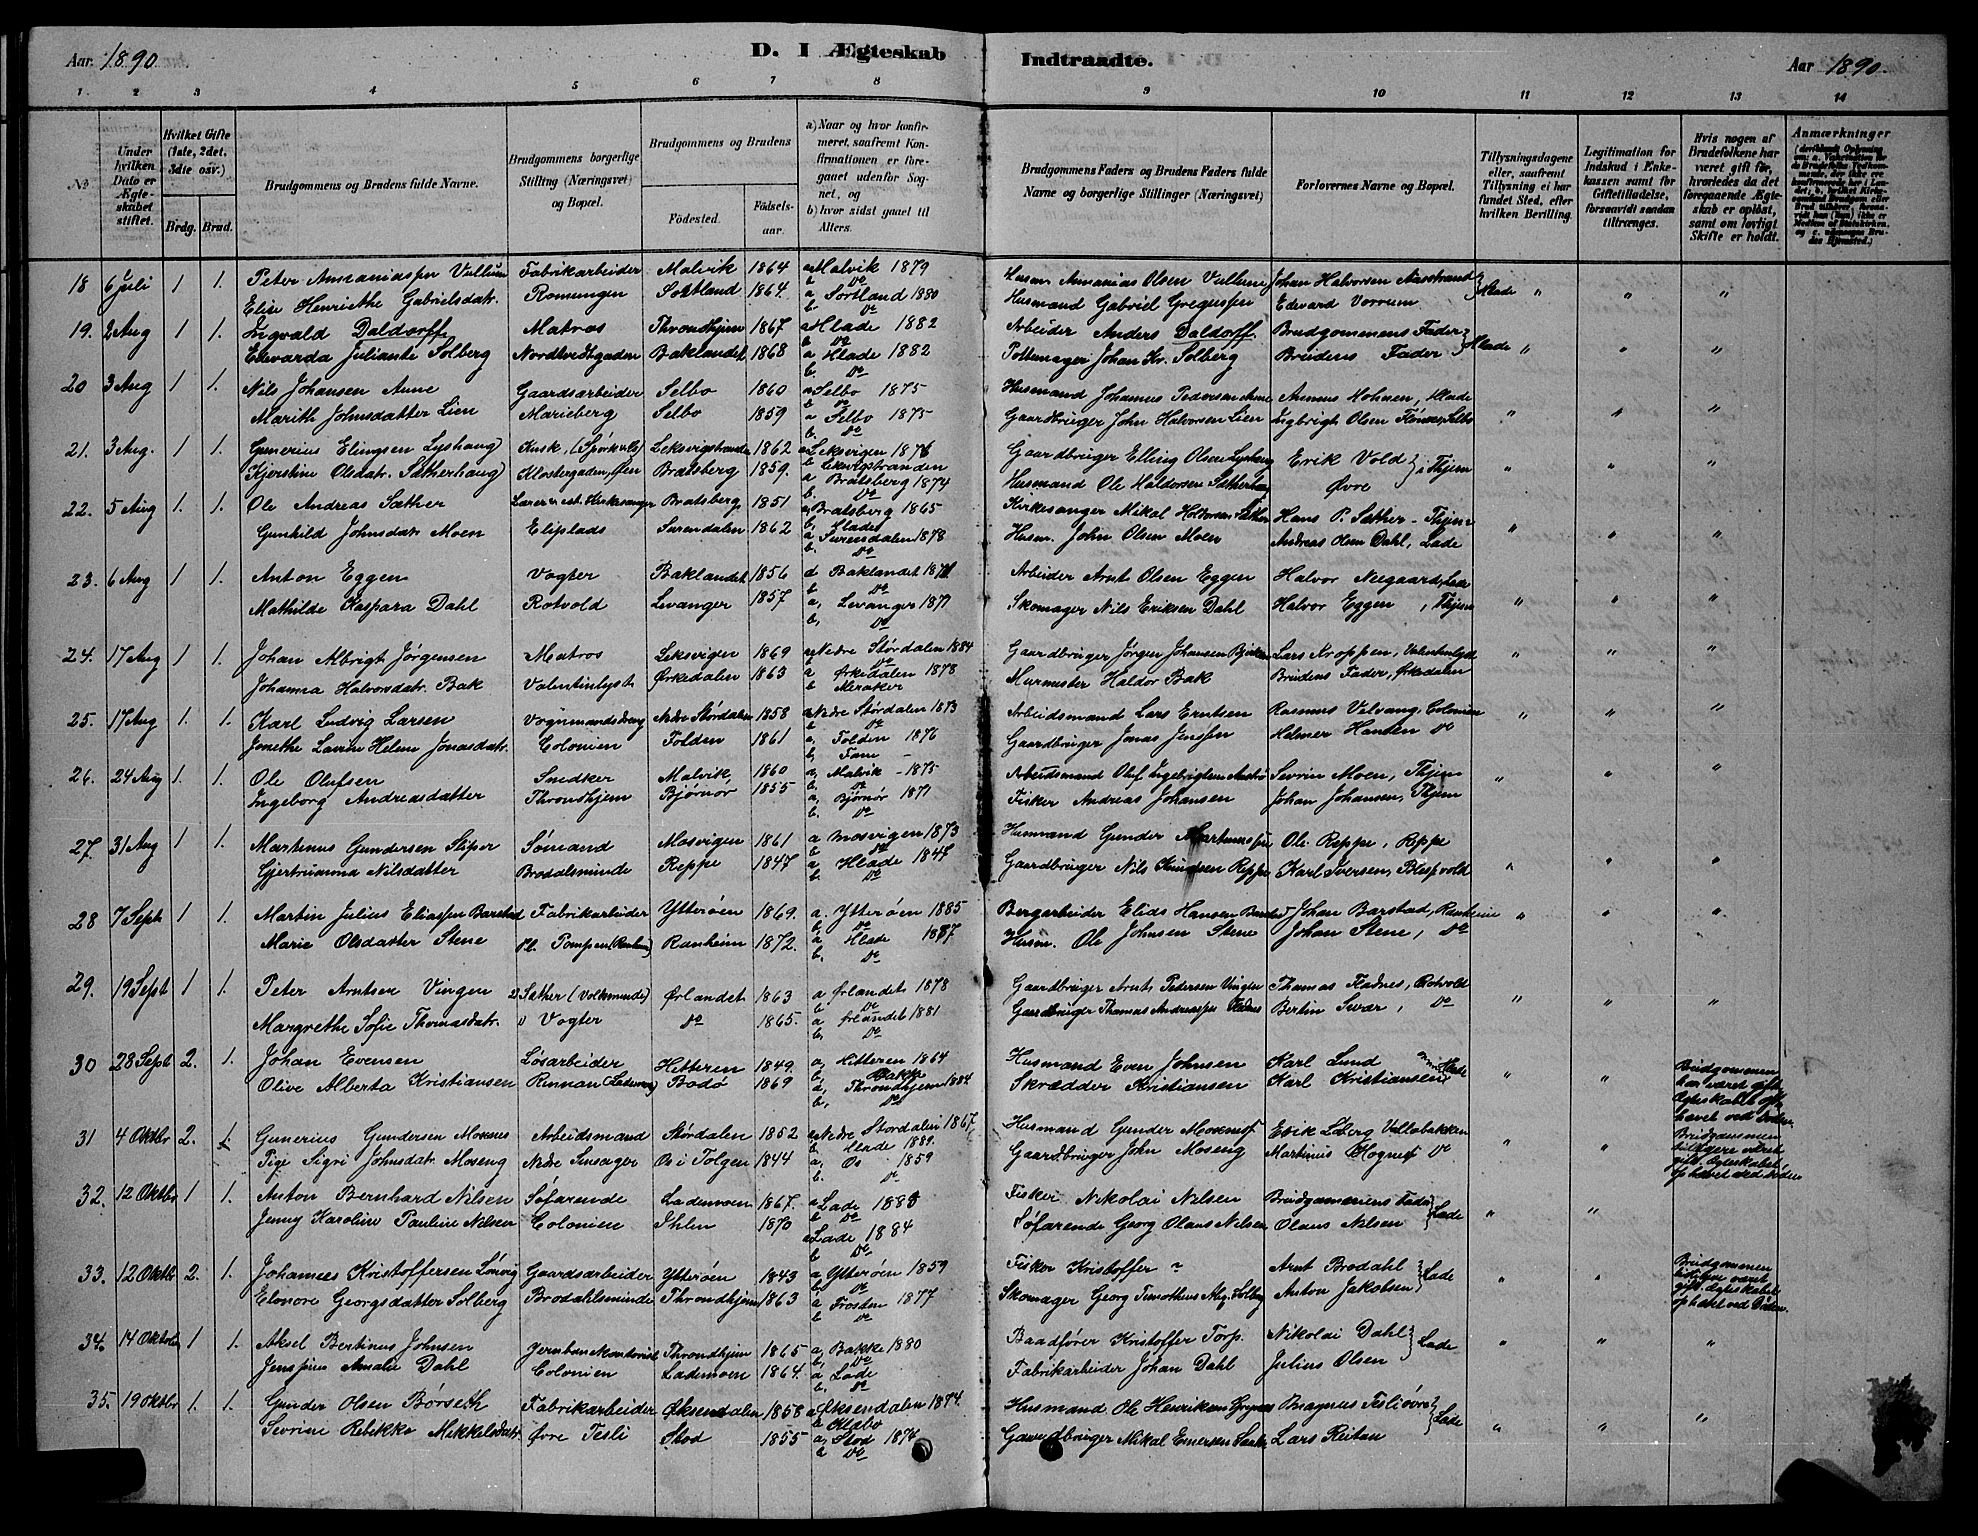 Aar. 1890.
D. I Ægteskab Indtraadte.
Aar 1890.
1 2 3 4 5 6 7 8 9 10 11 12 13 14
No
Under hvilken Dato er Ægteskabet stiftet.
Hvilket Gifte (1ste, 2det, 3die osv.)
Brdg. Brud.
Brudgommens og Brudens fulde Navne.
Brudgommens borgerlige Stilling (Næringsvei) og Bopæl.
Brudgommens og Brudens
Fødested. Fødselsaar.
a) Naar og hvor konfirmeret, saafremt Konfirmationen er foregaaet udenfor Sognet, og
b) hvor sidst gaaet til Alters.
Brudgommens Faders og Brudens Faders fulde Navne og borgerlige Stillinger (Næringsvei)
Forlovernes Navne og Bopæl.
Tillysningsdagene eller, saafremt Tillysning ei har fundet Sted, efter hvilken Bevilling.
Legitimation for Indskud i Enkekassen samt for Giftetilladelse, forsaavidt saadan tiltrænges.
Hvis nogen af Brudefolkene har været gift før, hvorledes da det foregaaende Ægteskab er opløst, samt om lovligt Skifte er holdt.
Anmærkninger
18 6 Juli 1 1. Peter Ananiassen Vullum Fabrikarbeider Malvik 1864 a Malvik 1879 Husm Ananias Olsen Vullum Johan Halvorsen
Elise Henriethe Gabrielsdatr. Romungen Sortland 1864. a Sortland 1880 Husmand Gabriel Gregussen Edvard Vorrum Hlade
19. 2 Aug 1 1. Ingvald Daldorff Matros Throndhjem 1867 a Hlade 1882 Arbeider Anders Daldorff Brudgomenens Fader
Edvarda Juliante Solberg Baklandet 1868 a Hlade 1882 Pottemager Johan Kr. Solberg Brudens Fader Hlade
20 3 Aug 1 1. Nils Johansen Aune Gaardsarbeider Selbo 1860 a Selbo 1875 Husmand Johannes Pedersen Aune Hlade
Marith Johnsdatter Lien Marieberg Selbo 1859 a Selbo 1875 Gaardbruger John Halvorsen Lien Ingbrigt Olsen Selbo
21. 3 Aug. 1 1. Gunerius Elingsen Lyshaug Kusk 1862 a Leksvigen 1876 Gaardbruger Elling Olsen Lyshaug Erik Vold Thjem
Kjerstine Olsdatr. Sætherhaug Klostergaden, Øen Bratsberg 1859. a Bratsberg 1874 Husmand Ole Haldorsen Sætherhaug Øvre
22. 5 Aug 1. 1. Ole Andreas Sæther Lærer Kirkesanger Bratsberg 1851 a Bratsberg 1865 Kirkesanger Mikal Halvorsen Sæther Hans P. Sæther - Thjem
Gunhild Johnsdatr Moen Eliplads Surendalen 1862 a Surendalen 1878 Husm. John Olsen Moen Andreas Olsen Dahl, Lade
23. 6 Aug 1 1. Anton Eggen Vogter Baklandet 1856 Baklandet 1871 Arbeider Arnt Olsen Eggen Halvor Neegaard, Lade
Mathilde Kaspara Dahl Rotvold Levanger 1857 a, Levanger 1871 Skomager Nils Eriksen Dahl Halvor Eggen, Thjem
24. 17 Aug 1 1. Johan Albrigt Jørgensen Matros Leksvigen 1869 a Nedre Størdalen 1884 Gaardbruger Jørgen Johansen Lars Kroppen, Valentinlyst
Johanna Halvorsdatr. Bak Valentinlyst Ørkedalen 1863 a Ørkedalen 1878 b Meraker Murmester Haldor Bak Brudens Fader, Ørkedalen
25. 17 Aug 1. 1. Karl Ludvig Larsen Vognmandsdreng Nedre Størdalen 1858 a Nedre Størdalen 1873 Arbeidsmand Lars Erntsen Rasmus Velvang, Colonien
Jonethe Lavrin Helene Jonasdatr. Colonien Folden 1861 a, Folden 1876 Gaardbruger Jonas Jenssen Helmer Hansen Do
26. 24 Aug 1. 1. Ole Olufsen Snedker Malvik, 1860 a, Malvik - 1875 Arbeidsmand Oluf Ingebrigtsen Sevrin Moen, Thjem
Ingeborg Andreasdatter Throndhjem Bjørnør 1855 a, Bjørnør 1871 Fisker Andreas Johansen Johan Johansen, Thjem
27. 31 Aug 1 1. Martinus Gundersen Sliper Sømand Mosvigen 1861 a Mosvigen 1873 Husmand Gunder Martinussen Ole Reppe, Reppe
Gjertruanna Nilsdatter Brodalsminde Reppe 1847 a, Hlade 1847 Gaardbruger Nils Knudsen Reppe Karl Iversen,
28 7 Sept 1 1. Martin Julius Eliassen Barstad Fabrikarbeider Ytterøen 1869. a. Ytterøen 1885 Bergarbeider Elias Hansen Barstad Johan Barstad, Ranheim
Marie Olsdatter Stene Pl. Pumpen (Ranheim) Ranheim 1872. a Hlade 1887 Husm. Ole Johnsen Stene Johan Stene, Do
29. 19 Sept 1 1. Peter Arntsen Vingen Sæther (Volkminde) Ørlandet 1863 a Ørlandet 1878 Gaardbruger Arnt Pedersen Vingen Thomas Fladnes, Rotvold
Margrethe Sofie Thomasdatr. Vogter Do 1865. a Ørlandet 1881 Gaardbruger Thomas Andreassen Fladnes Bertin Svær, Do
30 28 Sept 2. 1. Johan Evensen Løsarbeider Hitteren 1849. a, Hitteren 1864 b, Bakke Husmand Even Johnsen Karl Lund Hlade
Olive Alberta Kristiansen Rinnan (Lademoen) Bodø 1869 a, Throndhjem 1884 Skrædder Kristiansen Karl Kristiansen Brudgommen har været gift, Ægteskabet ophævet ved Døden
31 4 Oktbr 2. 1. Gunerius Gundersen Moxnes Arbeidsmand Størdalen 1852 a Nedre Stordalen 1867 b Hlade 1889. Husmand Gunder Moxnes Erik Loberg Vollabakken
Pige Sigri Johnsdatr. Moseng Nedre Os i Tolgen 1844 a, Os 1859 Gaardbruger John Moseng Martinus Hognes Do Brudgommen tidligere været gift. Ægteskabet ophævet ved Døden
32. 12 Oktbr 1 1. Anton Bernhard Nilsen Søfarende Lademoen 1867. a Lade 1883 Fisker Nikolai Nilsen Brudgommens Fader
Jenny Karoline Pauline Nilsen Colonien Ihlen 1870 a Lade 1884 Søfarende Georg Olaus Nilsen Olaus Nilsen Lade
33. 12 Oktbr 2. 1. Johannes Kristoffersen Gaardsarbeider Ytterøen 1843 a, Ytterøen 1859 Fisker Kristoffer Arnt Brodahl Lade
Elonore Georgsdatter Solberg Brodahlsminde Throndhjem 1863 a Frosten 1877 Skomager Georg Timotheus Solberg Anton Jakobsen Brudgommen tidligere været gift. Ægteskabet ophævet ved Døden.
34. 14 Oktober 1 1. Aksel Bertinus Johnsen Throndhjem 1865 a, Bakke 1880 Baadfører Kristoffer Torp. Nikolai Dahl
Jenspine Amalie Dahl Colonien Lademoen 1864. a Lade Fabrikarbeider Johan Dahl Julius Olsen Lade
35. 19 Oktbr 1. 1. Gunder Olsen Børseth Fabrikarbeider Øksendalen 1858 a Øksendalen 1874. b Klæbo Husmand Ole Henriksen Magnus Tesliøvre
Sevrine Rebekka Mikkelsdatr. Øvre Tesli Stod 1855 a, Stod 1874 Gaardbruger Mikal Lars Reitan Lade